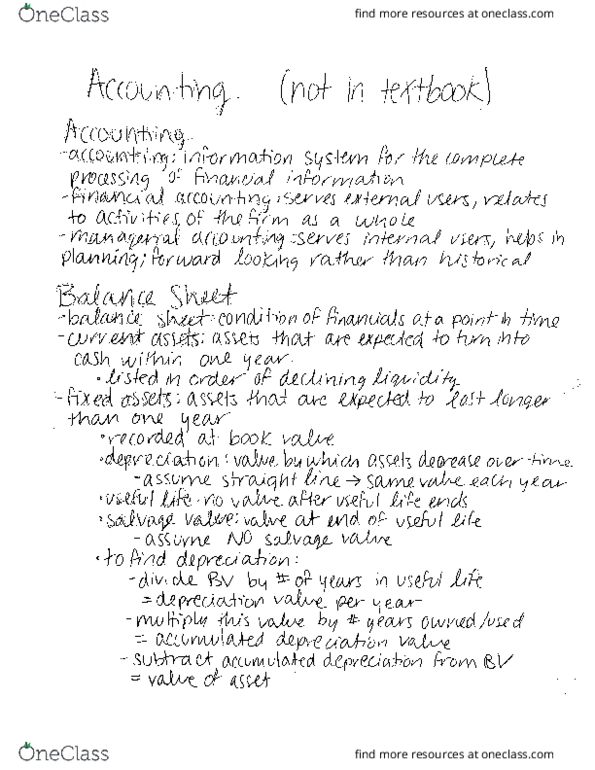 OneClass
find more resources at oneclass.com
Accounting. (not in textbook)
Accounting
-accounting: information system for the complete
processing of financial information
-financial accounting: serves external users, relates
to activities of the firm as a whole
-managerial accounting: serves internal users, helps in
planning; forward looking rather than historical
Balance Sheet
-balance sheet: condition of financials at a point in time
-current assets: assets that are expected to turn into
cash within one year.
•listed in order of declining liquidity
-fixed assets: assets that are expected to last longer
than one year
•recorded at book value
•depreciation: value by which assets decrease over time
-assume straight line → same value each year
•useful life: no value after useful life ends
•salvage value: value at end of useful life
-assume NO salvage value
•to find depreciation:
-divide BV by # of years in useful life
= depreciation value per year
-multiply this value by # years owned/used
= accumulated depreciation value
-subtract accumulated depreciation from BV
= value of asset
OneClass
find more resources at oneclass.com